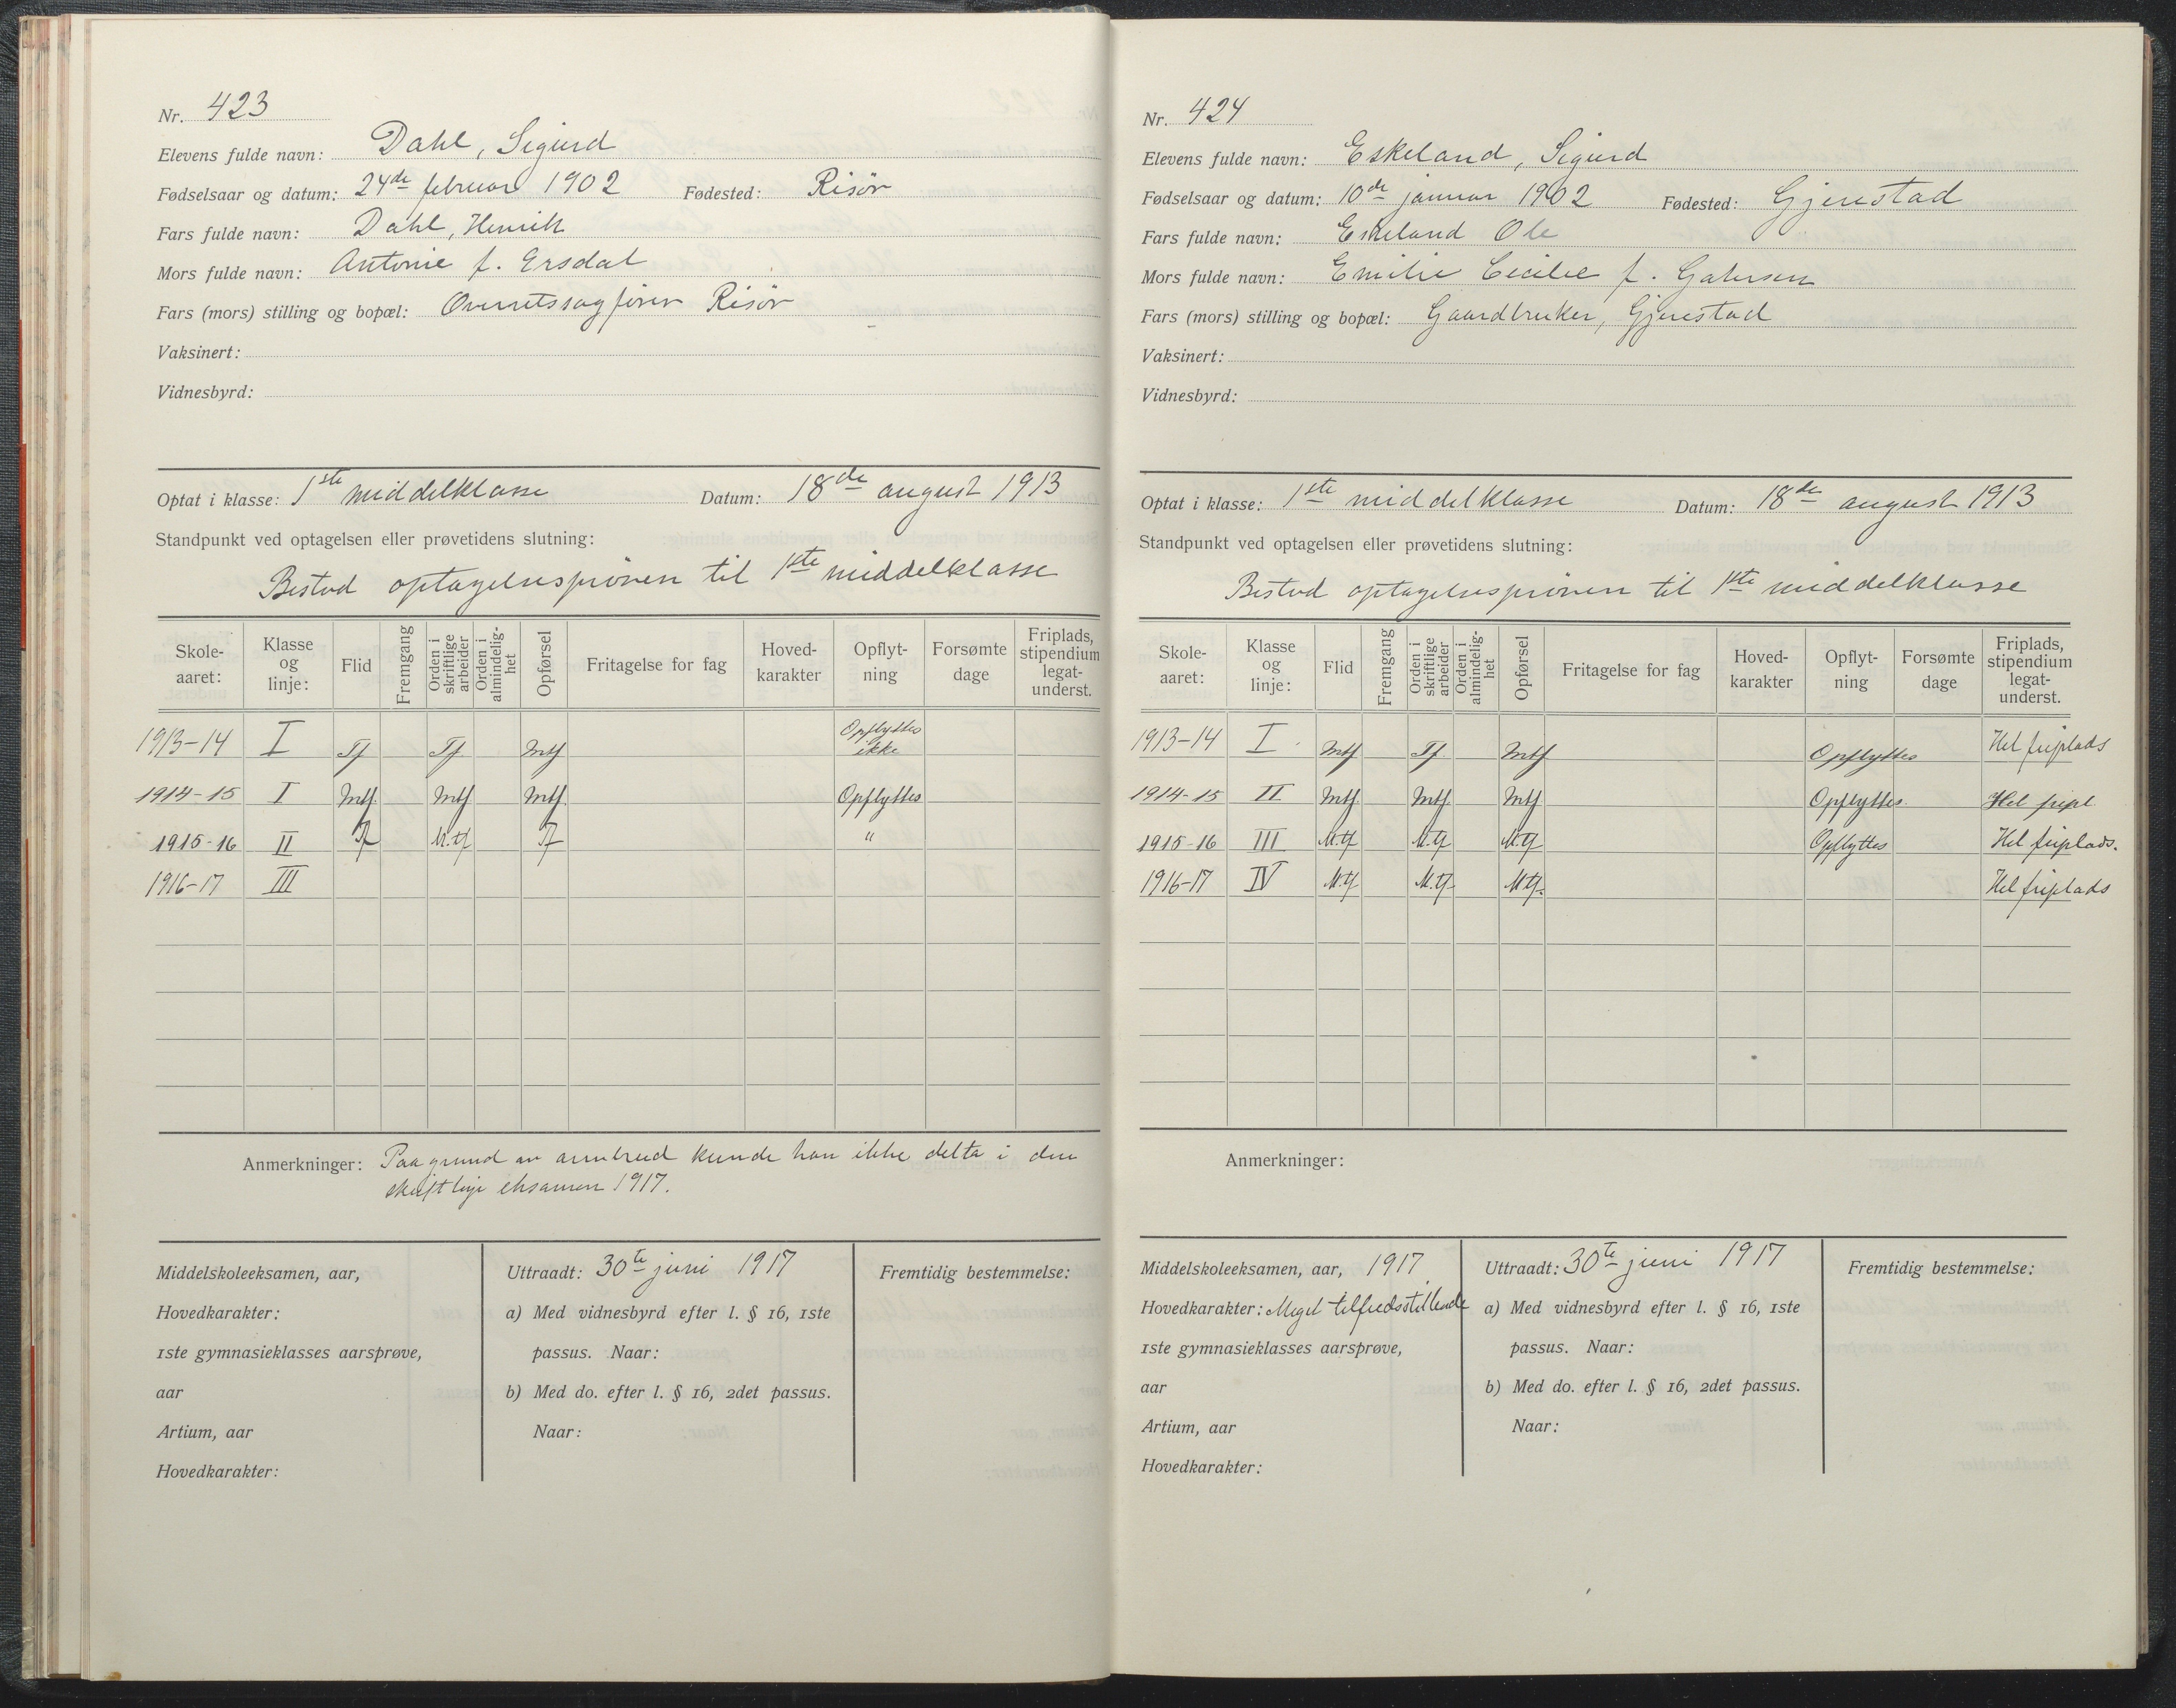 Nr. 423
Elevens fulde navn: Dahl, Sigurd
Fødselsaar og datum: 24de februar 1902 Fødested: Risør
Fars fulde navn: Dahl, Henrik
Mors fulde navn: Antonie f. Ersdal
Fars (mors) stilling og bopæl: Overretssagfører Risör
Vaksinert:
Vidnesbyrd:
Optat i klasse: 1ste middelklasse Datum: 18de august 1913
Standpunkt ved optagelsen eller prøvetidens slutning:
Bestod optagelsesprøven til 1ste middelklasse
Skole-aaret: Klasse og linje: Flid Fremgang Orden i skriftlige arbeider Orden i almindelig-het Opførsel Fritagelse for fag Hoved-karakter Opflyt-ning Forsømte dage Friplads, stipendium legat-underst.
1913-14 I Tf Tf Mtf Opflyttes ikke
1914-15 I Mtf. Mtf Mtf. Opflyttes
1915-16 II Tf M.tf Tf "
1916-17 III
Anmerkninger: Paa grund av armbrud kunde han ikke delta i den
skriftlige eksamen 1917.
Middelskoleeksamen, aar,
Hovedkarakter:
1ste gymnasieklasses aarsprøve,
aar
Artium, aar
Hovedkarakter:
Uttraadt: 30te juni 1917
a) Med vidnesbyrd efter l. § 16, 1ste
passus. Naar:
b) Med do. efter l. § 16, 2det passus.
Naar:
Fremtidig bestemmelse:
Nr. 424
Elevens fulde navn: Eskeland, Sigurd
Fødselsaar og datum: 10de januar 1902 Fødested: Gjerestad
Fars fulde navn: Eskeland Ole
Mors fulde navn: Emilie Cecilie f.
Fars (mors) stilling og bopæl: Gaardbruker, Gjerestad
Vaksinert:
Vidnesbyrd:
Optat i klasse: 1ste middelklasse Datum: 18de august 1913
Standpunkt ved optagelsen eller prøvetidens slutning:
Bestod optagelsesprøven til 1ste middelklasse
Skole-aaret: Klasse og linje: Flid Fremgang Orden i skriftlige arbeider Orden i almindelig-het Opførsel Fritagelse for fag Hoved-karakter Opflyt-ning Forsømte dage Friplads, stipendium legat-underst.
1913-14 I Mtf Tf. Mtf Opflyttes Hel friplads
1914-15 II Mtf. Mtf. Mtf. Opflyttes. Hel fripl
1915-16 III M.tf M.tf M.tf Opflyttes Hel friplads.
1916-17 IV M.tf M.tf. M.tf. Hel friplads
Anmerkninger:
Middelskoleeksamen, aar, 1917
Hovedkarakter: Meget tilfredsstillende
1ste gymnasieklasses aarsprøve,
aar
Artium, aar
Hovedkarakter:
Uttraadt: 30te juni 1917
a) Med vidnesbyrd efter l. § 16, 1ste
passus. Naar:
b) Med do. efter l. § 16, 2det passus.
Naar:
Fremtidig bestemmelse: